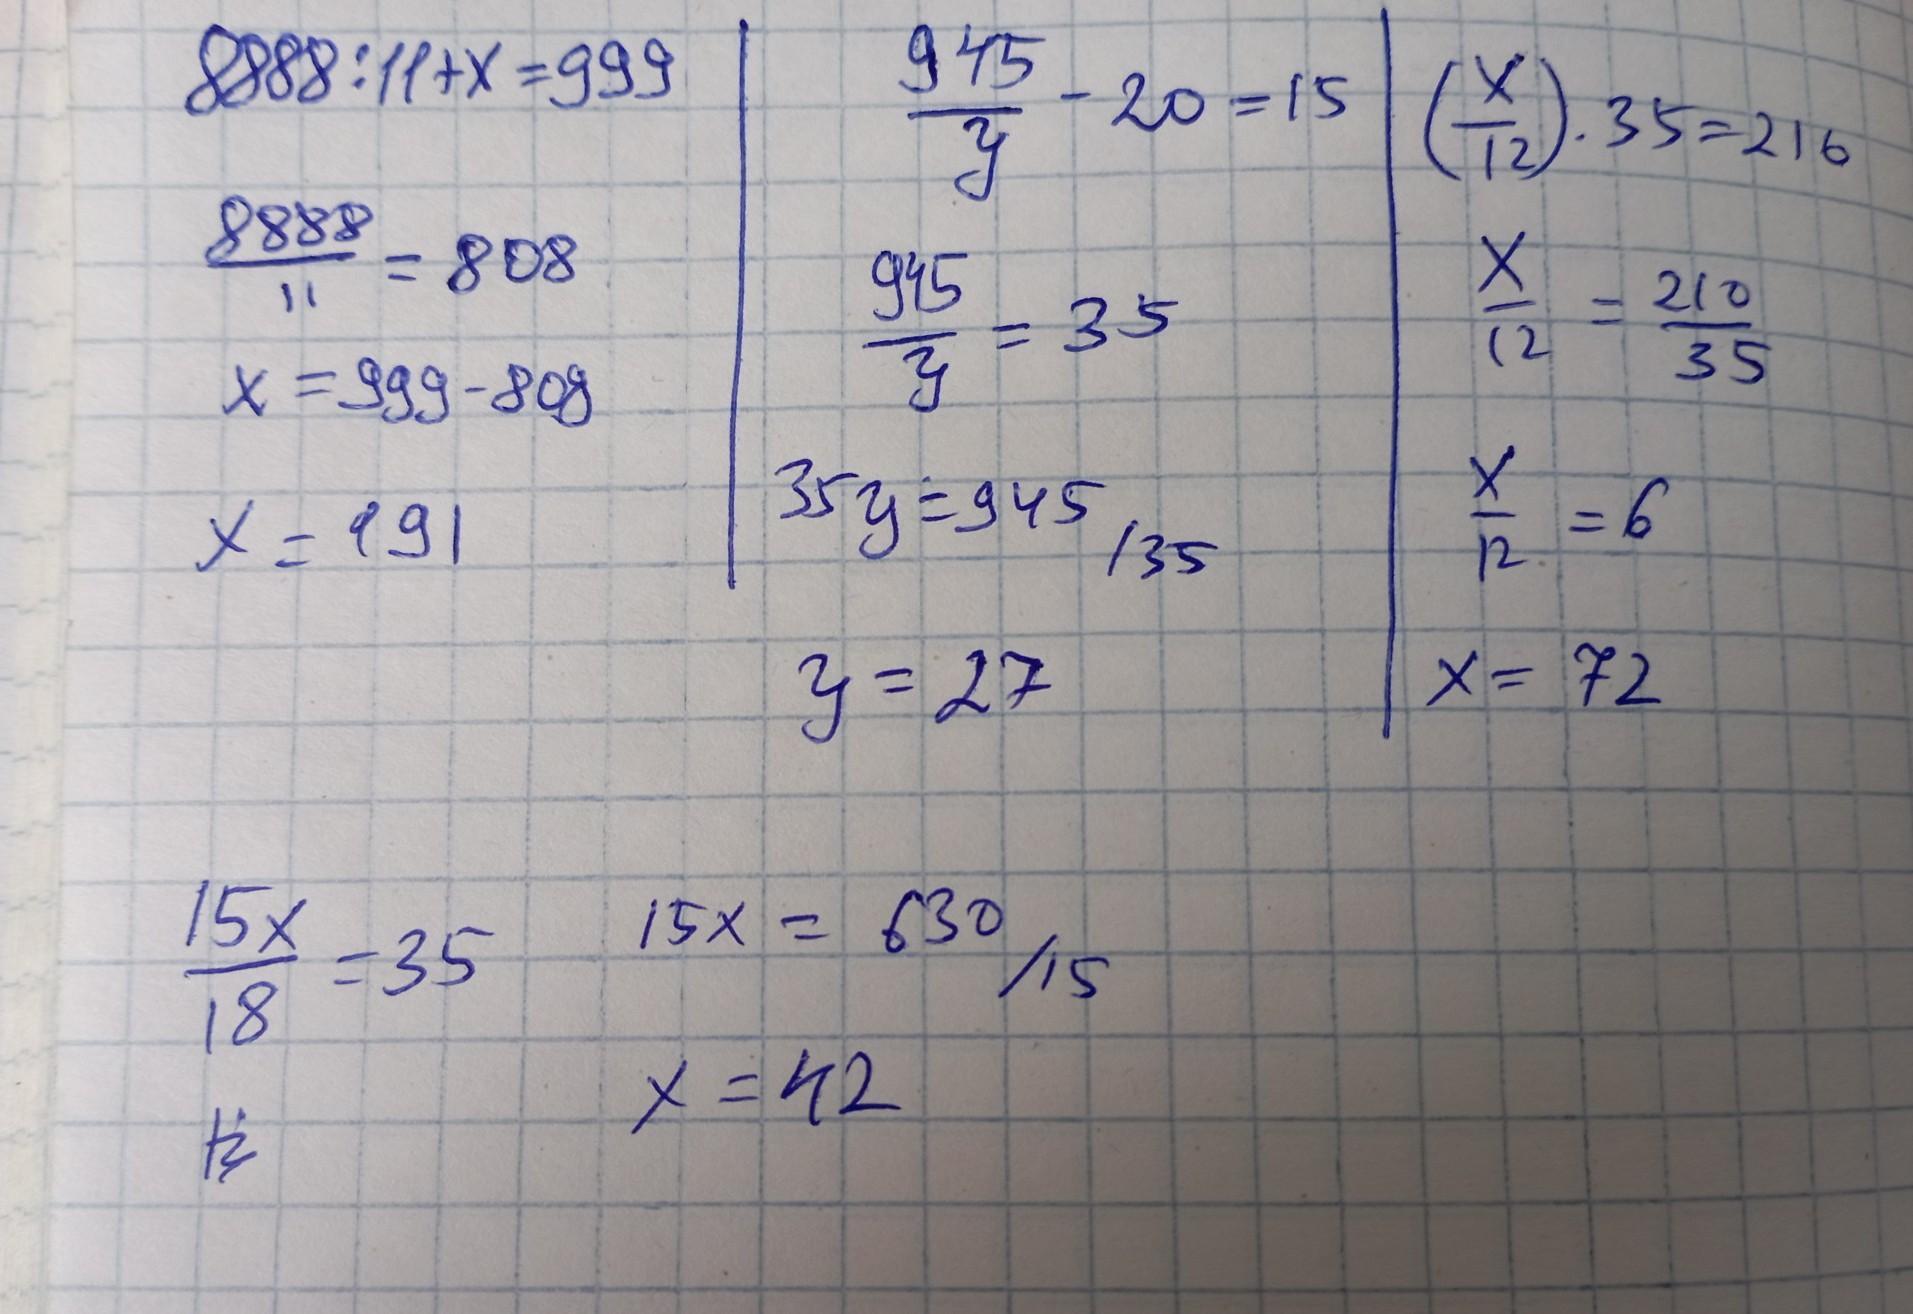 8888:11+x=999
8888/11 = 808
x = 999-808
x = 191
945/y - 20 = 15
945/y = 35
35y = 945 /35
y = 27
(x/12) · 35 = 216
x/12 = 210/35
x/12 = 6
x = 72
15x/18 = 35
15x = 630 /15
x = 42